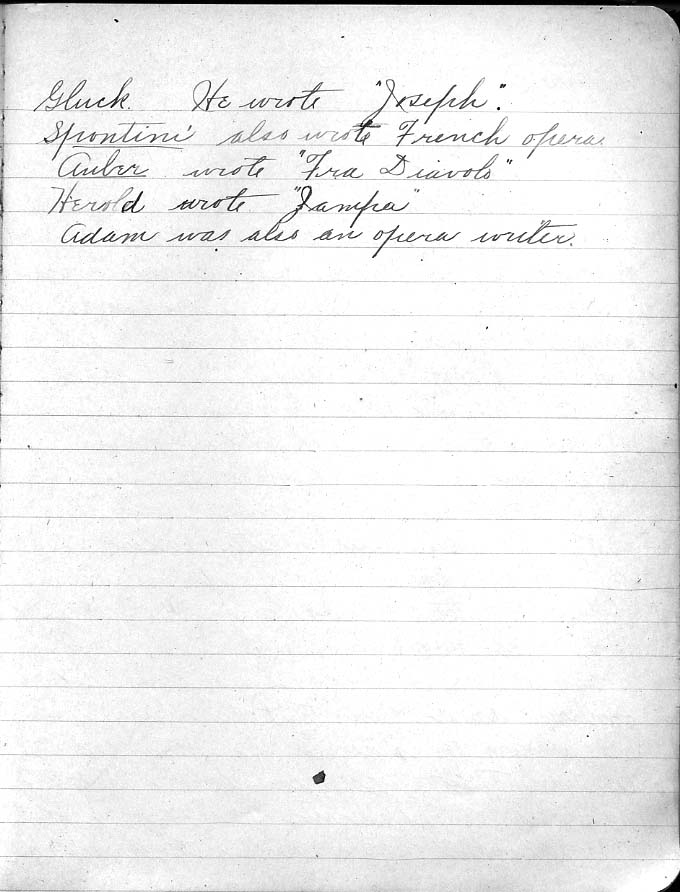 Gluck. He wrote "Joseph".
Spontini also wrote French opera.
Auber wrote "Fra Diavolo"
Herold wrote "Zampa"
Adam was also an opera writer.